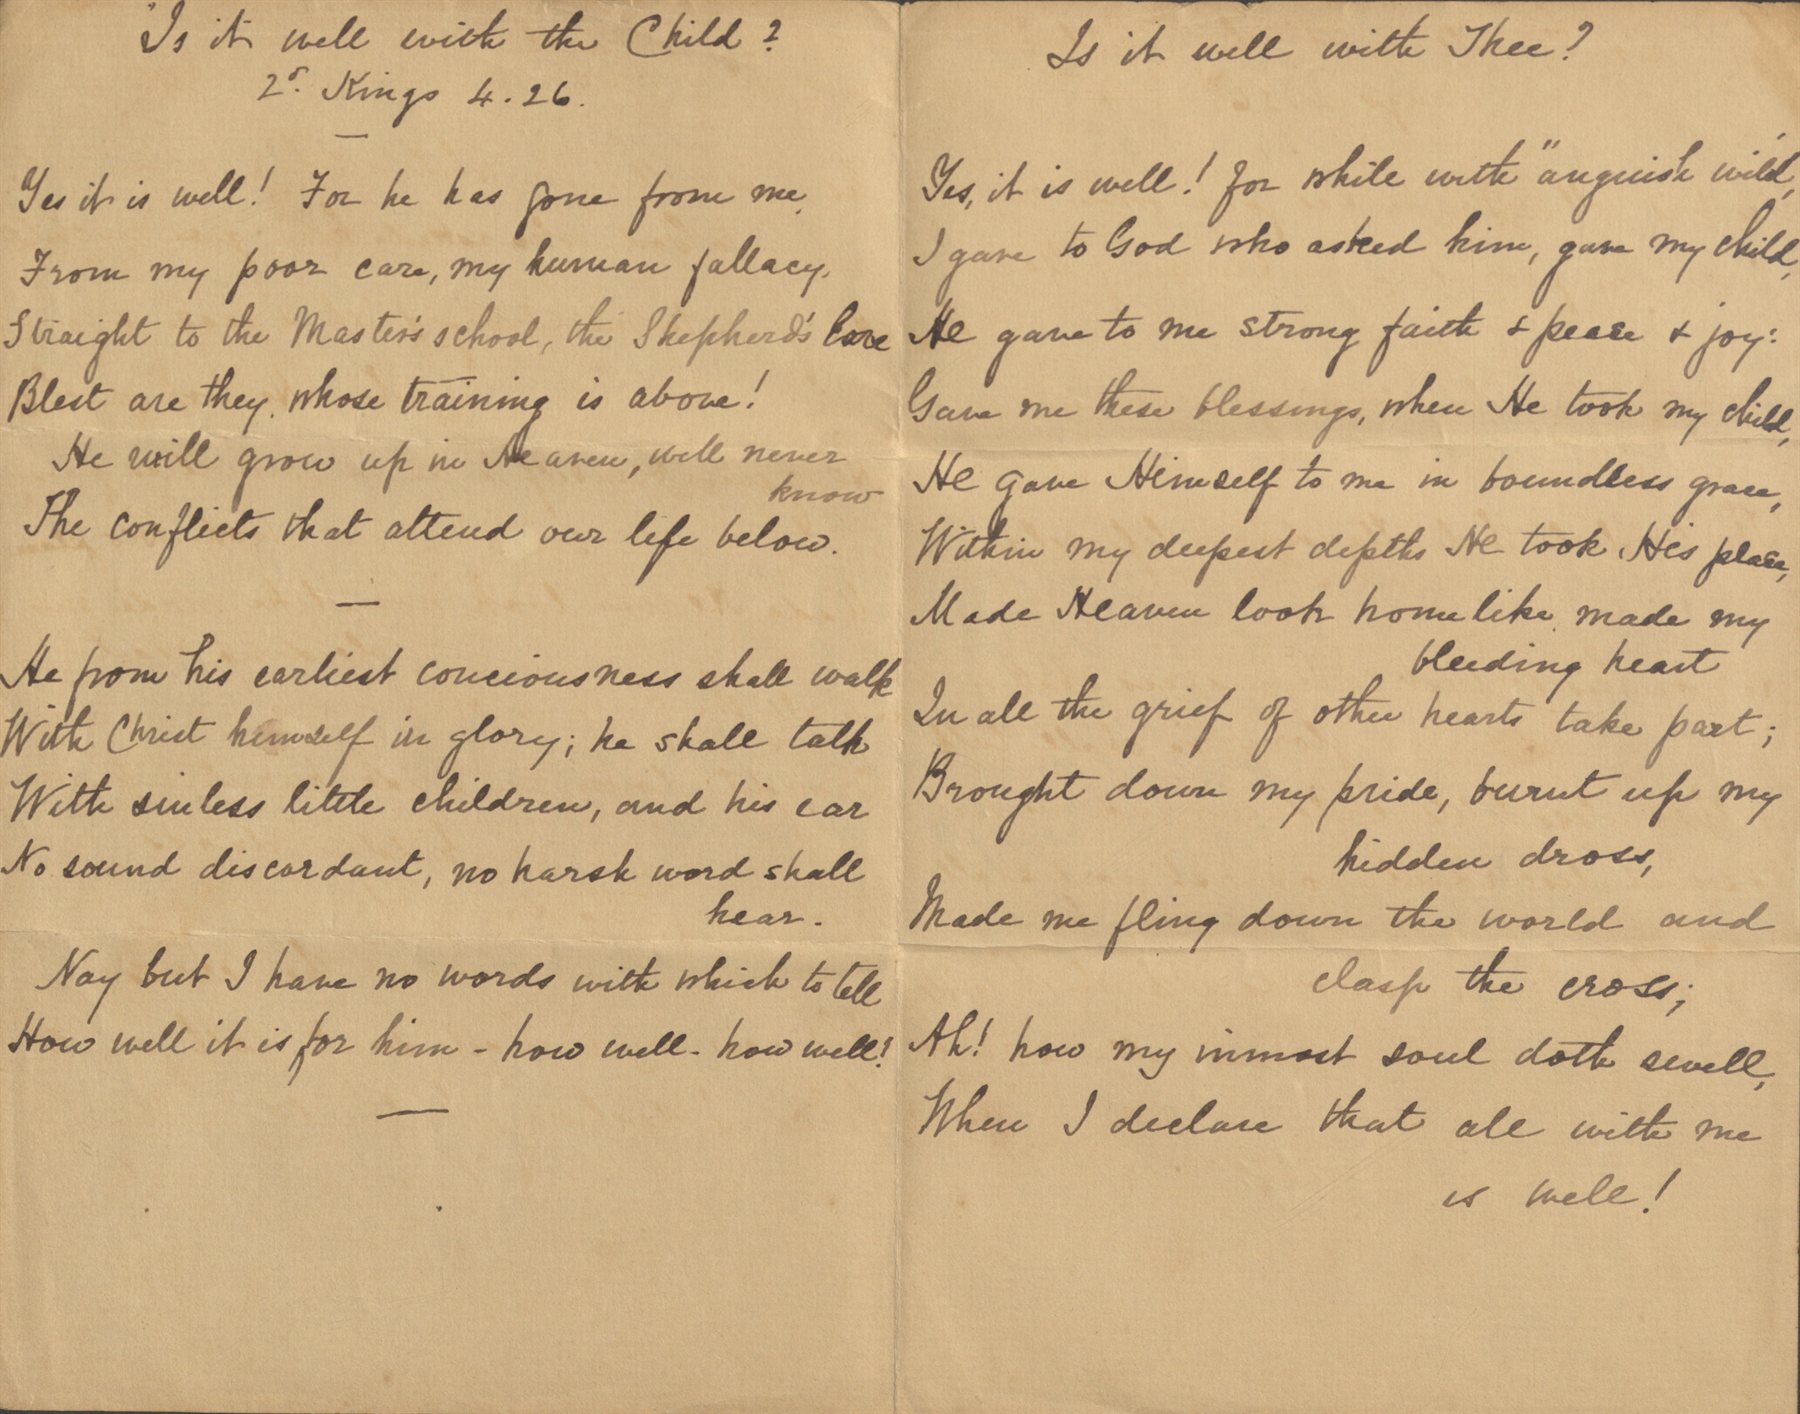 "Is it well with the Child?
2d. Kings 4.26.
Yes it is well! For he has gone from me,
From my poor care, my human fallacy,
Straight to the Master's school, the Shepherd's love
Blest are they, whose training is above!
He will grow up in Heaven, will never
know
The conflicts that attend our life below.
He from his earliest conciousness shall walk
With Christ himself in glory; he shall talk
With sinless little children, and his ear
No sound discordant, no harsh word shall
hear.
Nay but I have no words with which to tell
How well it is for him - how well - how well!
Is it well with Thee?
Yes, it is well! for while with "anguish wild,"
I gave to God who asked him, gave my child,
He gave to me strong faith & peace & joy:
Gave me these blessings, when He took my child,
He gave Himself to me in boundless grace,
Within my deepest depths He took His place,
Made Heaven look homelike, made my
bleeding heart
In all the grief of other hearts take part;
Brought down my pride, burnt up my
hidden dross,
Made me fling down the world and
clasp the cross;
Ah! how my inmost soul doth swell,
When I declare that all with me
is well!